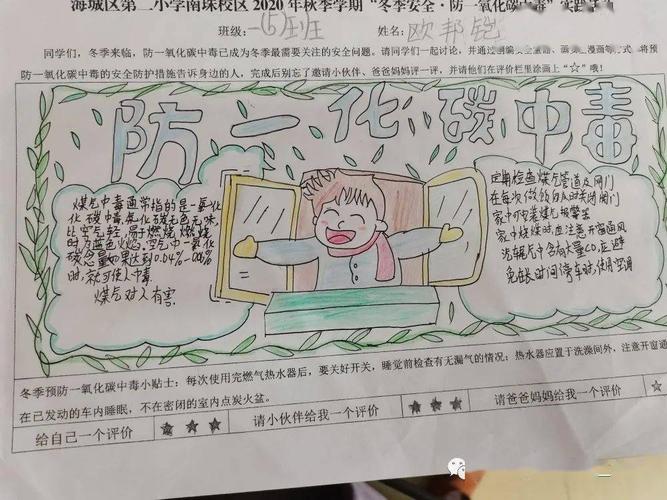 海城区第二小学南珠校区2020年秋季学期“冬季安全·防一氧化碳中毒”实践
班级：一(5)班 姓名：欧邦铠
同学们，冬季来临，防一氧化碳中毒已成为冬季最需要关注的安全问题。请同学们一起讨论，并通过 安全 漫画等 式 将预
防一氧化碳中毒的安全防护措施告诉身边的人，完成后别忘了邀请小伙伴、爸爸妈妈评一评，并请他们在评价栏里涂画上“☆”哦！
防一化碳中毒
煤气中毒通常指的是一氧化
化碳中毒,氧化碳无色无味,
比空气轻,易于燃烧,燃烧
时为蓝色火焰,空气中一氧化
碳含量如果达到0.04%-
时,就可使人中毒
煤气对人有害.
定期检查煤气管道及阀门
在每次做饭 时关闭阀门
家中 装煤气报警器
家中烧煤时 注意开窗通风
汽车尾气中含有大量CO,应避
免长时间停车时使用空调
冬季预防一氧化碳中毒小贴士：每次使用完燃气热水器后，要关好开关，睡觉前检查有无漏气的情况；热水器应置于洗澡间外，注意开窗通
在已发动的车内睡眠，不在密闭的室内点炭火盆。
给自己一个评价 ★★★ 请小伙伴给我一个评价 ★★★ 请爸爸妈妈给我一个评价 ☆